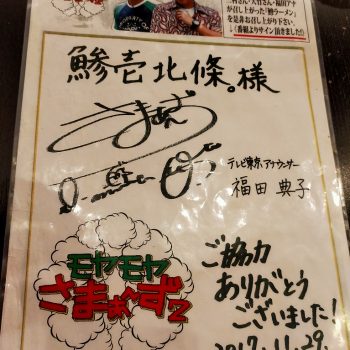 大竹さん・福田アナ
が召し上がった「鯵ラーメン」
を是非お召し上がり下さい。
↓(番組よりサイン頂きました!)
鯵壱北條。様
さまぁ〜ず
テレビ東京アナウンサー
福田典子
モヤモヤ
さまぁ〜ず2
ご協力
ありがとう
ございました!
2017.11.29.